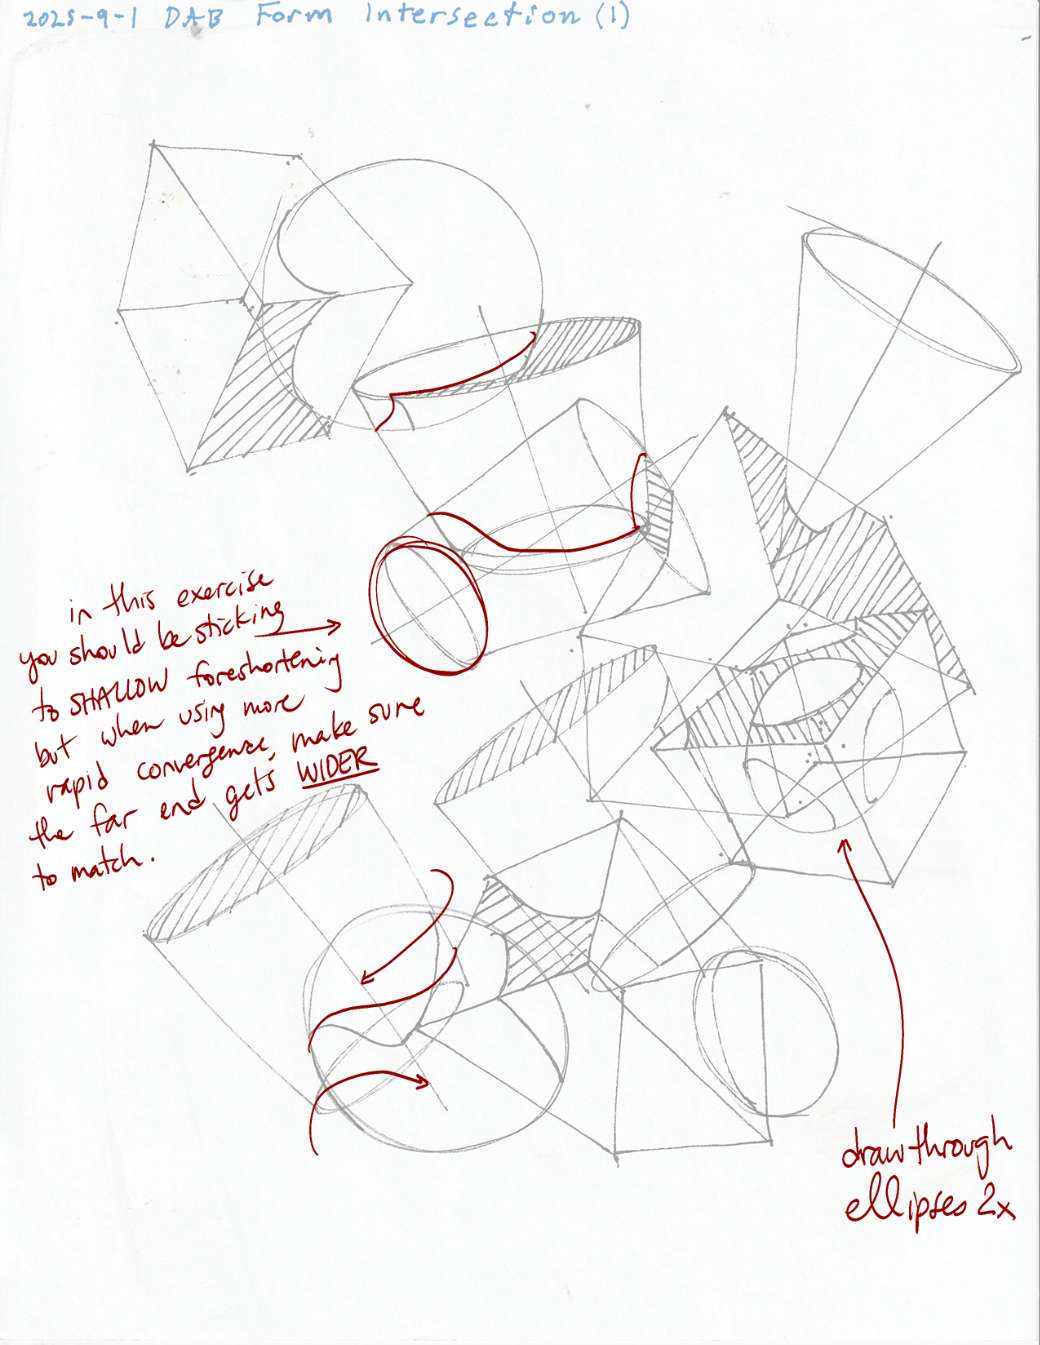 2025-9-1 DAB Form Intersection (1)
in this exercise
you should be sticking
to SHALLOW foreshortening
but when using more
rapid convergence, make sure
the far end gets WIDER
to match.
draw through
ellipses 2x